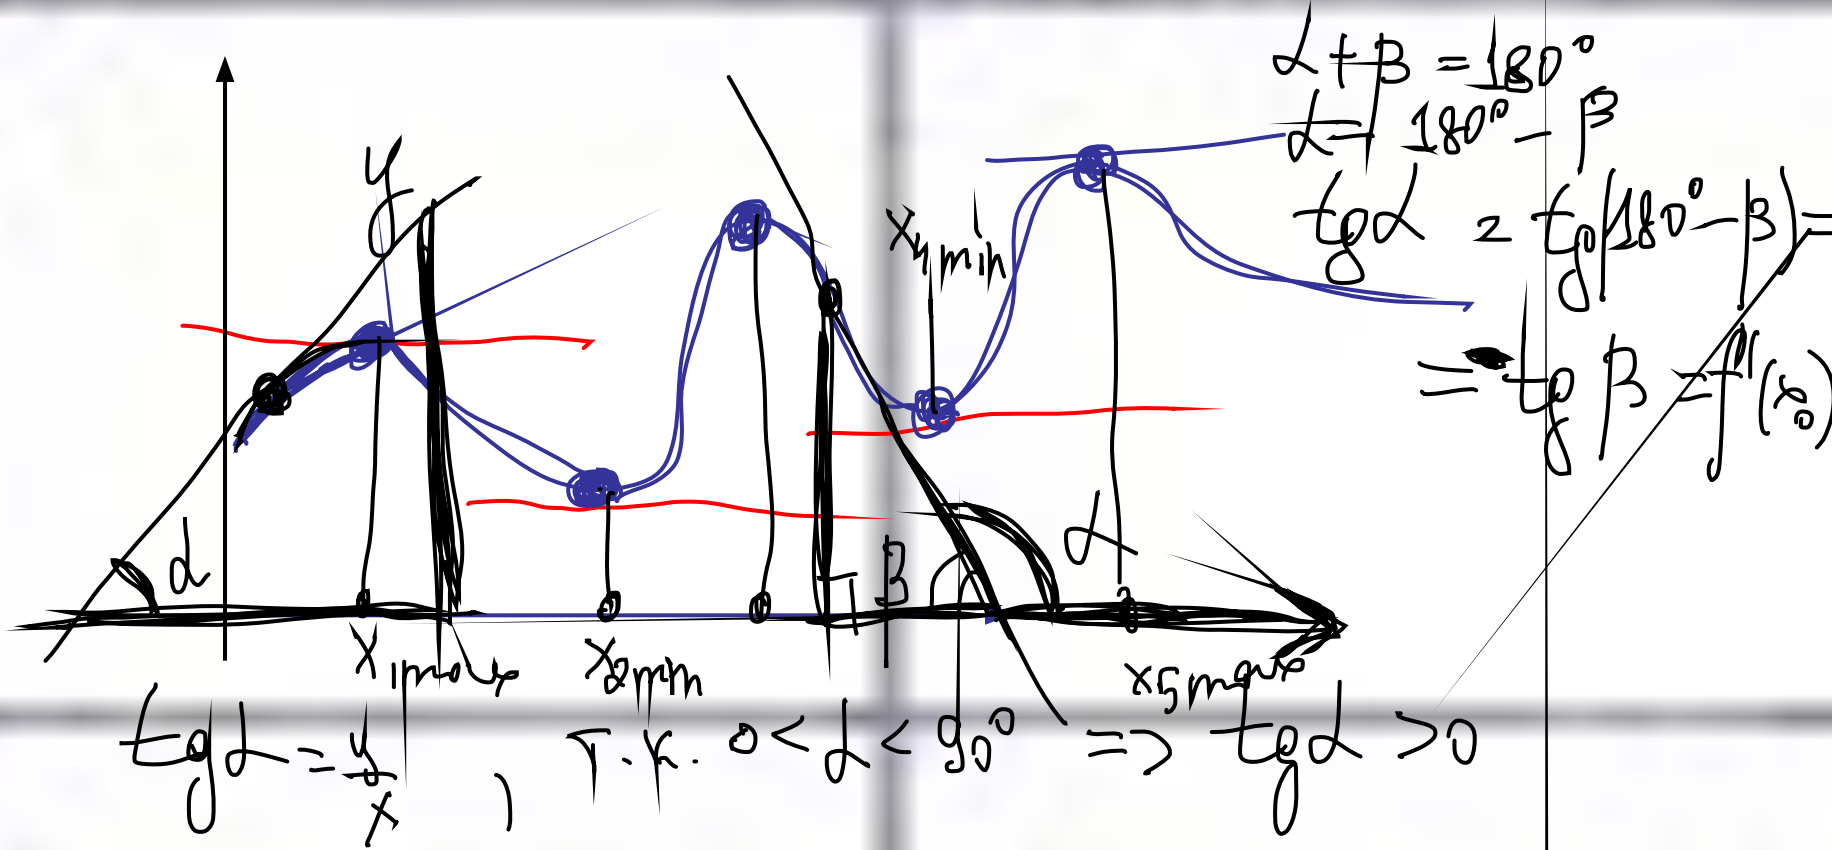 α + β = 180°
α = 180° - β
tg α = tg(180° - β) =
= - tg β = f'(x₀)
y
x₄ min
α
β
α
x₁ max
x₂ min
x₅ max
tg α = y/x , т.к. 0 < α < 90° => tg α > 0